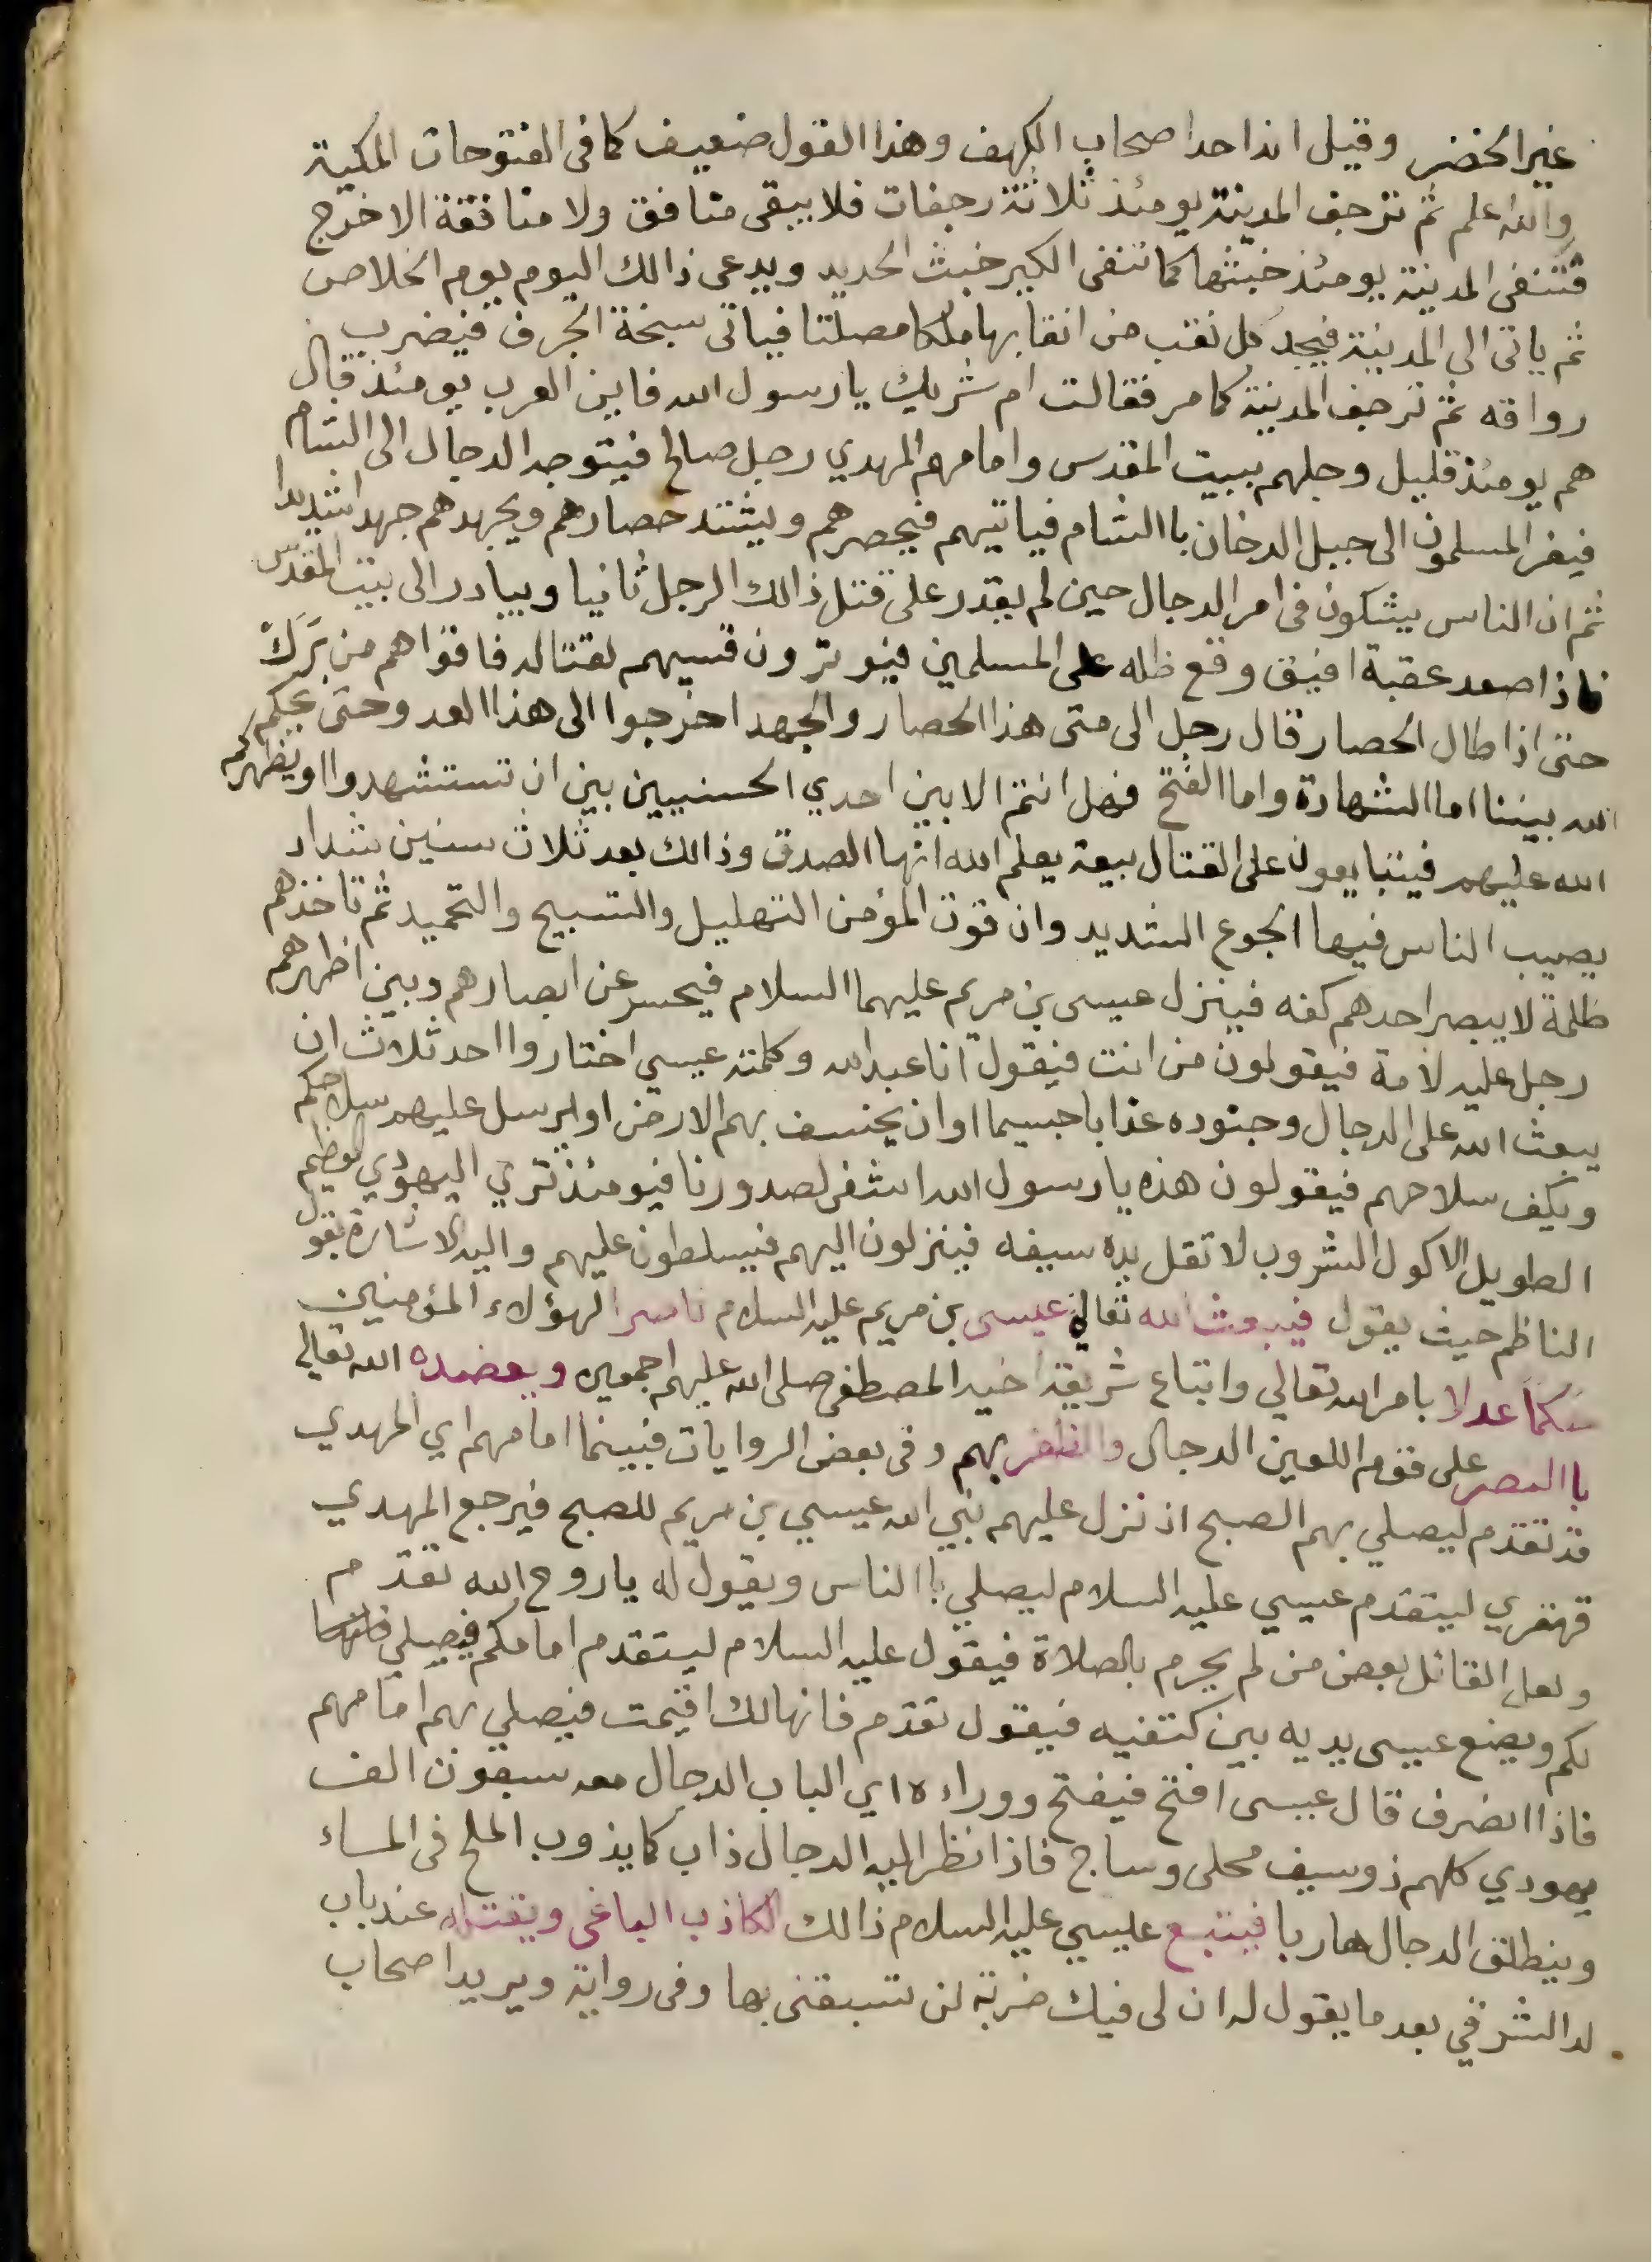 غير الخضر وقيل انه احد اصحاب الكهف وهذا القول ضعيف كما فى الفتوحات المكية
والله اعلم ثم ترجف المدينة يومئذ ثلاثة رجفات فلا يبقى منافق ولا منافقة الا خرج
فتنفى المدينة يومئذ خبثها كما تنفى الكير خبث الحديد ويدعى ذالك اليوم يوم الخلاص
ثم ياتى الى المدينة فيجد كل نقب من انقابها ملكا مصلتا فياتى سبخة الجرف فيضرب
رواقه ثم ترجف المدينة كما مر فقالت ام شريك يا رسول الله فاين العرب يومئذ قال
هم يومئذ قليل وجلهم ببيت المقدس وامامهم المهدي رجل صالح فيتوجه الدجال الى الشام
فيفر المسلمون الى جبل الدخان باالشام فياتيهم فيحصرهم ويشتد حصارهم ويجهدهم جهدا شديدا
ثم ان الناس يشكون فى امر الدجال حين لم يقدر على قتل ذالك الرجل ثانيا ويبادر الى بيت المقدس
فاذا صعد عقبة افيق وقع ظله على المسلمين فيوترون قسيهم لقتاله فاقواهم من برك
حتى اذا طال الحصار قال رجل الى متى هذا الحصار والجهد اخرجوا الى هذا العد وحتى يحكم
الله بيننا اما الشهادة واما الفتح فهل انتم الا بين احدي الحسنيين بين ان تستشهدوا او يظهركم
الله عليهم فيتبايعون على القتال بيعة يعلم الله انها الصدق وذالك بعد ثلاث سنين شداد
يصيب الناس فيها الجوع الشديد وان قوت المؤمن التهليل والتسبيح والتحميد ثم تاخذهم
ظلمة لا يبصر احدهم كفه فينزل عيسى بن مريم عليهما السلام فيحسر عن ابصارهم وبين اظهرهم
رجل عليه لامة فيقولون من انت فيقول انا عبد الله وكلمته عيسي اختاروا احد ثلاث ان
يبعث الله على الدجال وجنوده عذابا جسيما او ان يخسف بهم الارض او يرسل عليهم سلاحكم
ويكف سلاحهم فيقولون هذه يا رسول الله اشفى لصدورنا فيومئذ تري اليهودي العظيم
الطويل الاكول الشروب لا تقل يده سيفه فينزلون اليهم فيسلطون عليهم واليه الاشارة بقول
الناظم حيث يقول فيبعث الله تعالى عيسى بن مريم عليه السلام ناصرا لهؤلاء المؤمنين
حكما عدلا بامر الله تعالي واتباع شريعة اخيه المصطفى صلى الله عليهم اجمعين ويعضده الله تعالي
باالنصر على قوم اللعين الدجال والظفر بهم وفى بعض الروايات فبينما امامهم اي المهدي
قد تقدم ليصلي بهم الصبح اذ نزل عليهم نبي الله عيسي بن مريم للصبح فيرجع المهدي
قهقري ليتقدم عيسي عليه السلام ليصلي باالناس ويقول له يا روح الله تقدم
ولعل القائل بعض من لم يحرم بالصلاة فيقول عليه السلام ليتقدم امامكم فيصلي
لكم ويضع عيسى يديه بين كتفيه فيقول تقدم فانها لك اقيمت فيصلي بهم امامهم
فاذا انصرف قال عيسى افتح فيفتح ووراءه اي الباب الدجال معه سبعون الف
يهودي كلهم ذو سيف محلى وساج فاذا نظر اليه الدجال ذاب كما يذوب الملح فى الماء
وينطلق الدجال هاربا فيتبع عيسي عليه السلام ذالك الكاذب الباغى ويقتله عند باب
لد الشرقي بعد ما يقول له ان لى فيك ضربة لن تسبقنى بها وفى رواية ويريد اصحاب